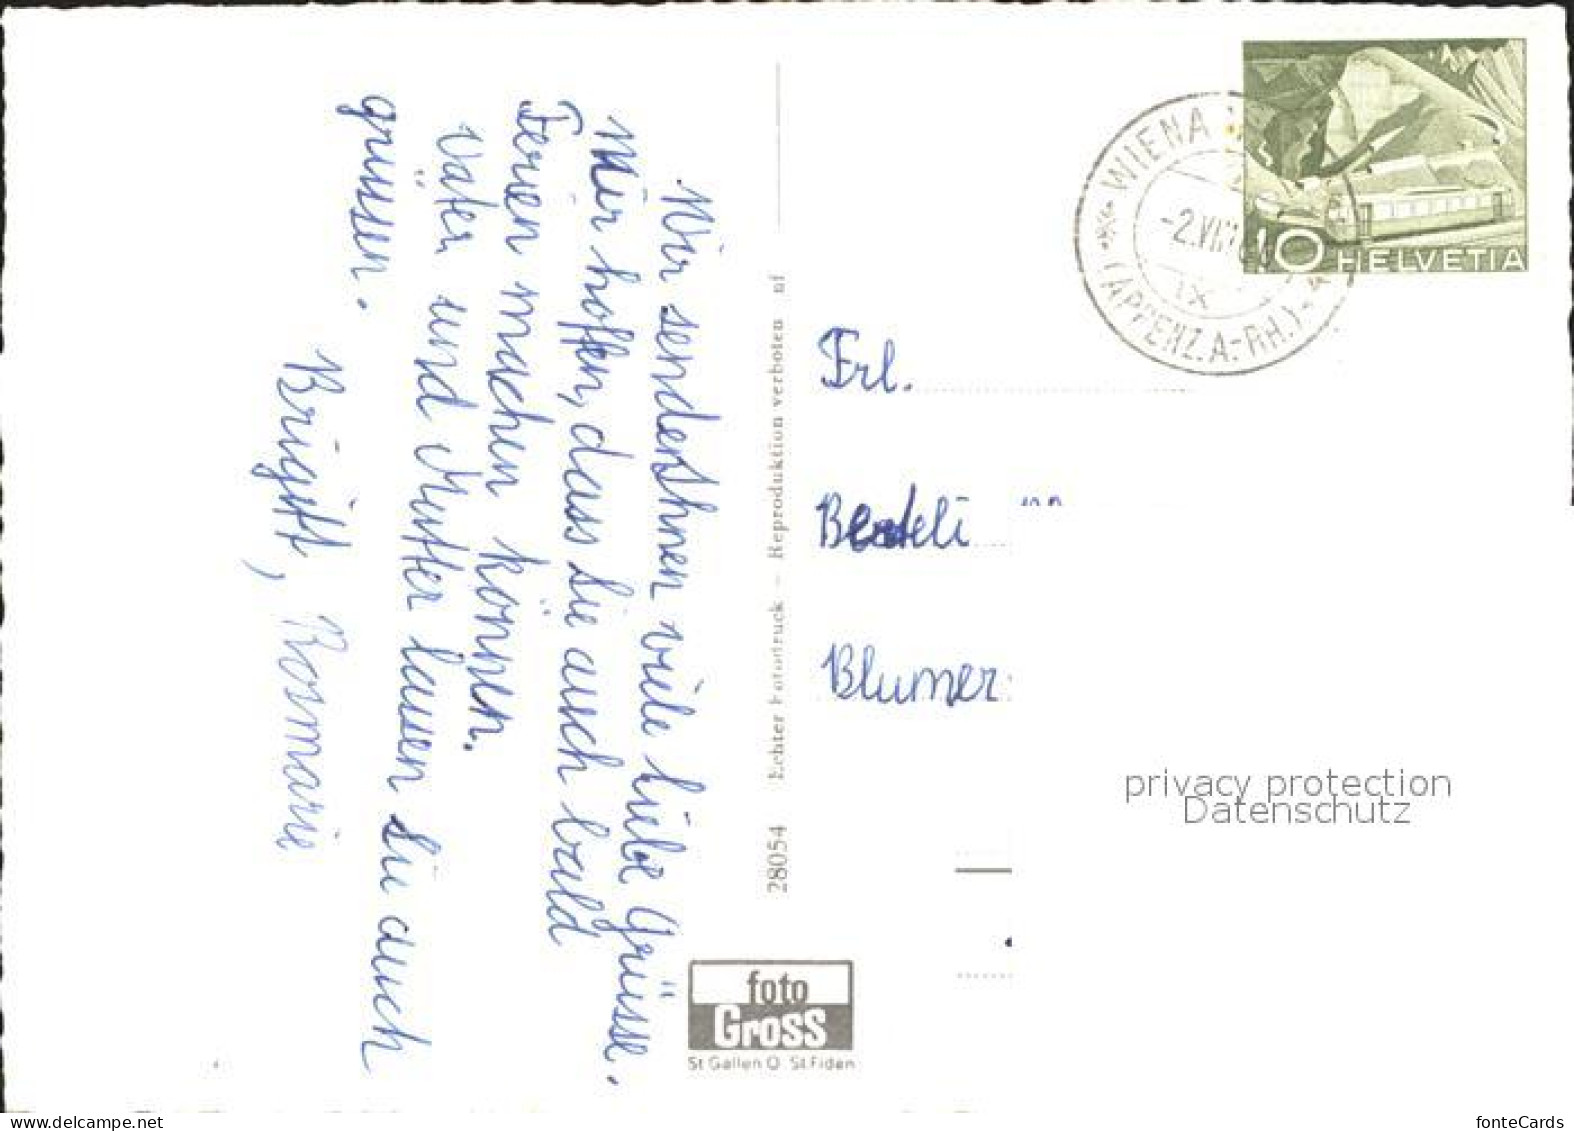 Wir senden Ihnen viele liebe Grüsse.
Wir hoffen, dass Sie auch bald
Ferien machen können.
Vater und Mutter lassen Sie auch
grüssen.
Brigitt, Rosmarie
28054 Echter Fotodruck — Reproduktion verboten nf
foto
Gross
St Gallen O. St.Fiden
WIENA
-2.VII
IX
(APPENZ.A.-RH.)
10 HELVETIA
Frl.
Blumer
privacy protection
Datenschutz
www.delcampe.net
fonteCards